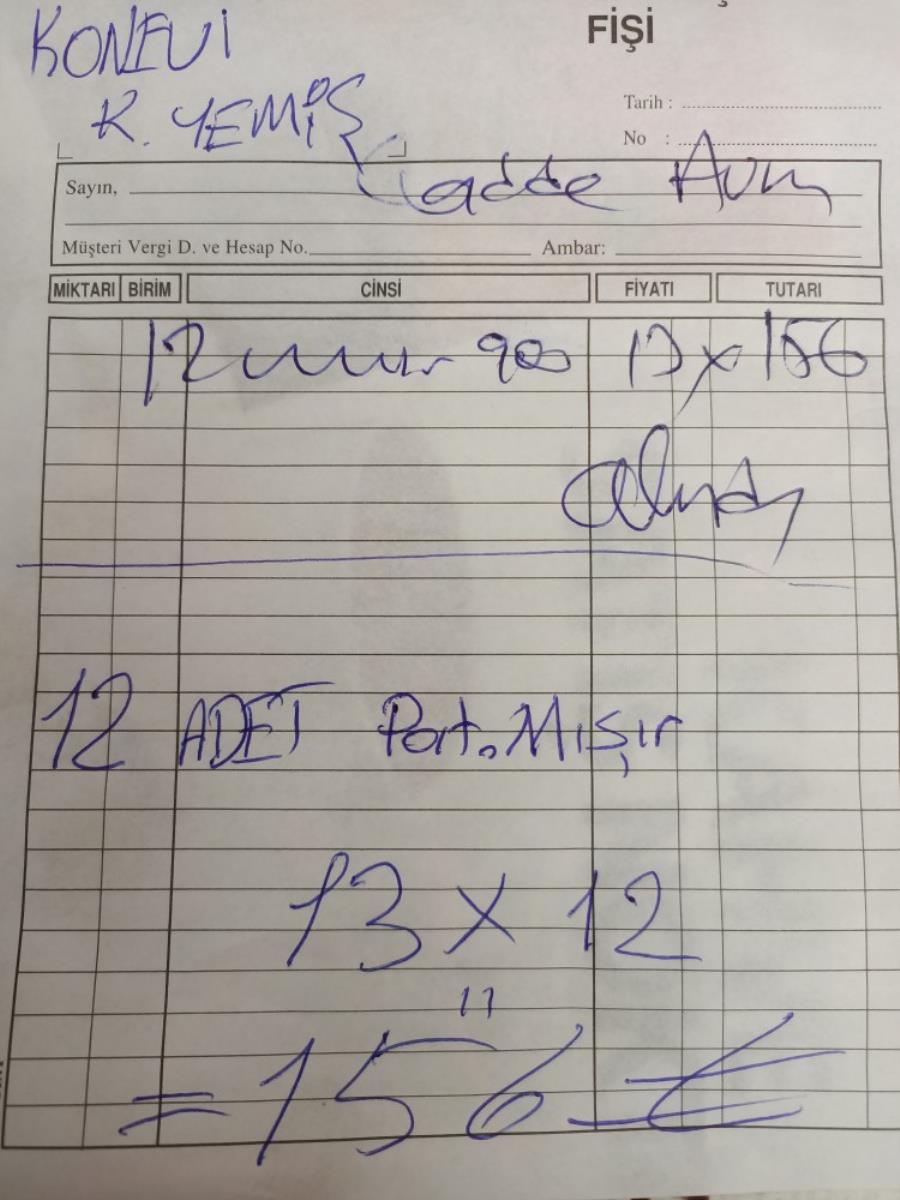 FİŞİ
KONEVİ
K. YEMİŞ
Tarih :
No :
Sayın, Cadde
Müşteri Vergi D. ve Hesap No. Ambar:
MİKTARI BİRİM CİNSİ FİYATI TUTARI
12 900 13 x 156
12 ADET Port. Mışır
13 x 12
= 156 ₺